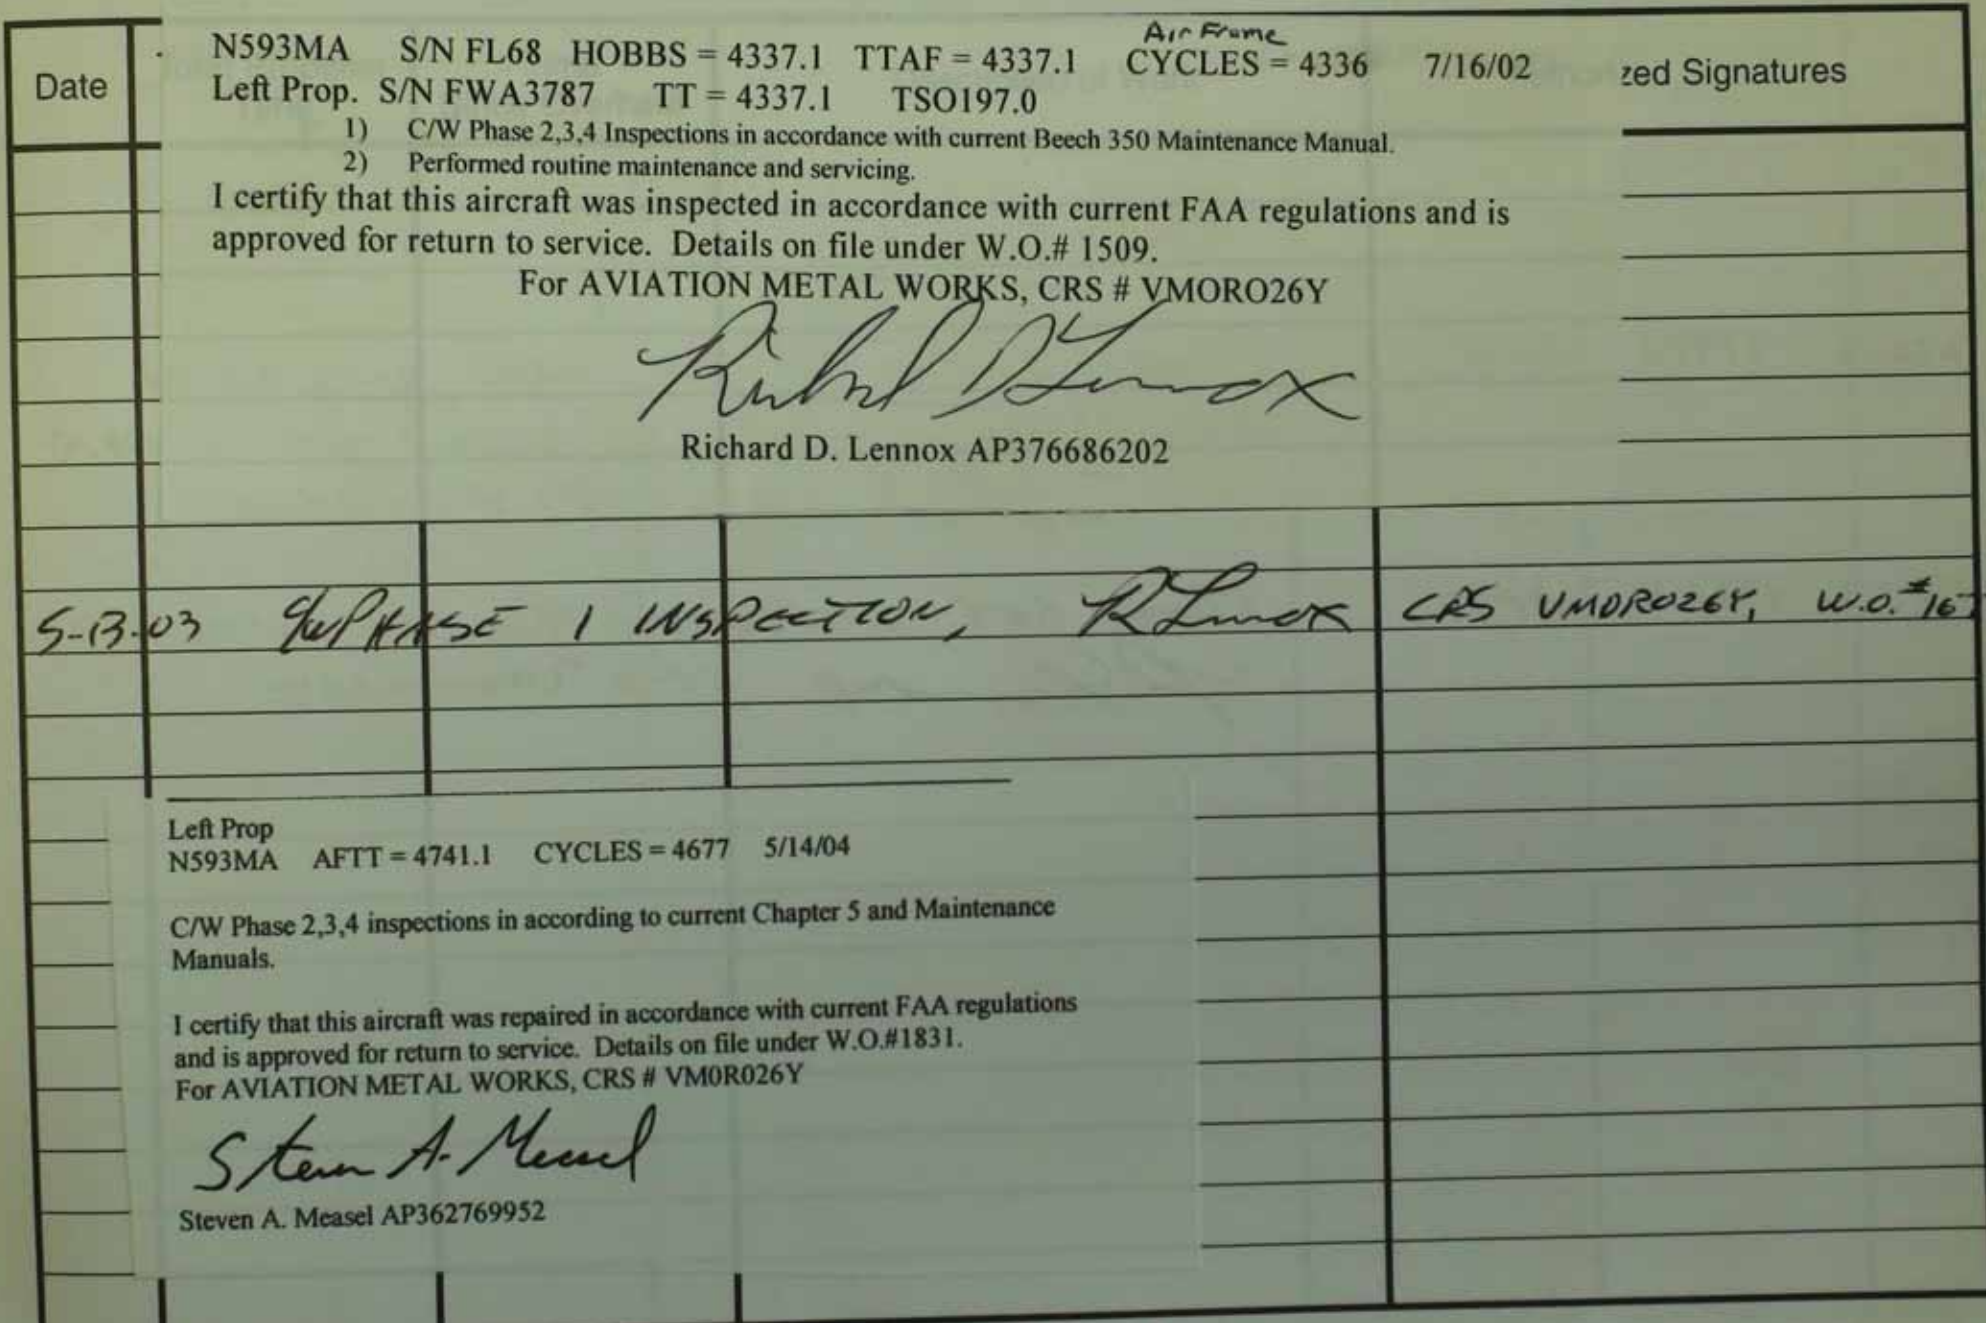 Date
Air Frame
N593MA S/N FL68 HOBBS = 4337.1 TTAF = 4337.1 CYCLES = 4336 7/16/02
zed Signatures
Left Prop. S/N FWA3787 TT = 4337.1 TSO197.0
1) C/W Phase 2,3,4 Inspections in accordance with current Beech 350 Maintenance Manual.
2) Performed routine maintenance and servicing.
I certify that this aircraft was inspected in accordance with current FAA regulations and is
approved for return to service. Details on file under W.O.# 1509.
For AVIATION METAL WORKS, CRS # VMORO26Y
Richard D Lennox
Richard D. Lennox AP376686202
5-13-03 C/W PHASE 1 INSPECTION, R Lennox CRS VMOR026Y, W.O.#167
Left Prop
N593MA AFTT = 4741.1 CYCLES = 4677 5/14/04
C/W Phase 2,3,4 inspections in according to current Chapter 5 and Maintenance
Manuals.
I certify that this aircraft was repaired in accordance with current FAA regulations
and is approved for return to service. Details on file under W.O.#1831.
For AVIATION METAL WORKS, CRS # VM0R026Y
Steven A. Measel
Steven A. Measel AP362769952